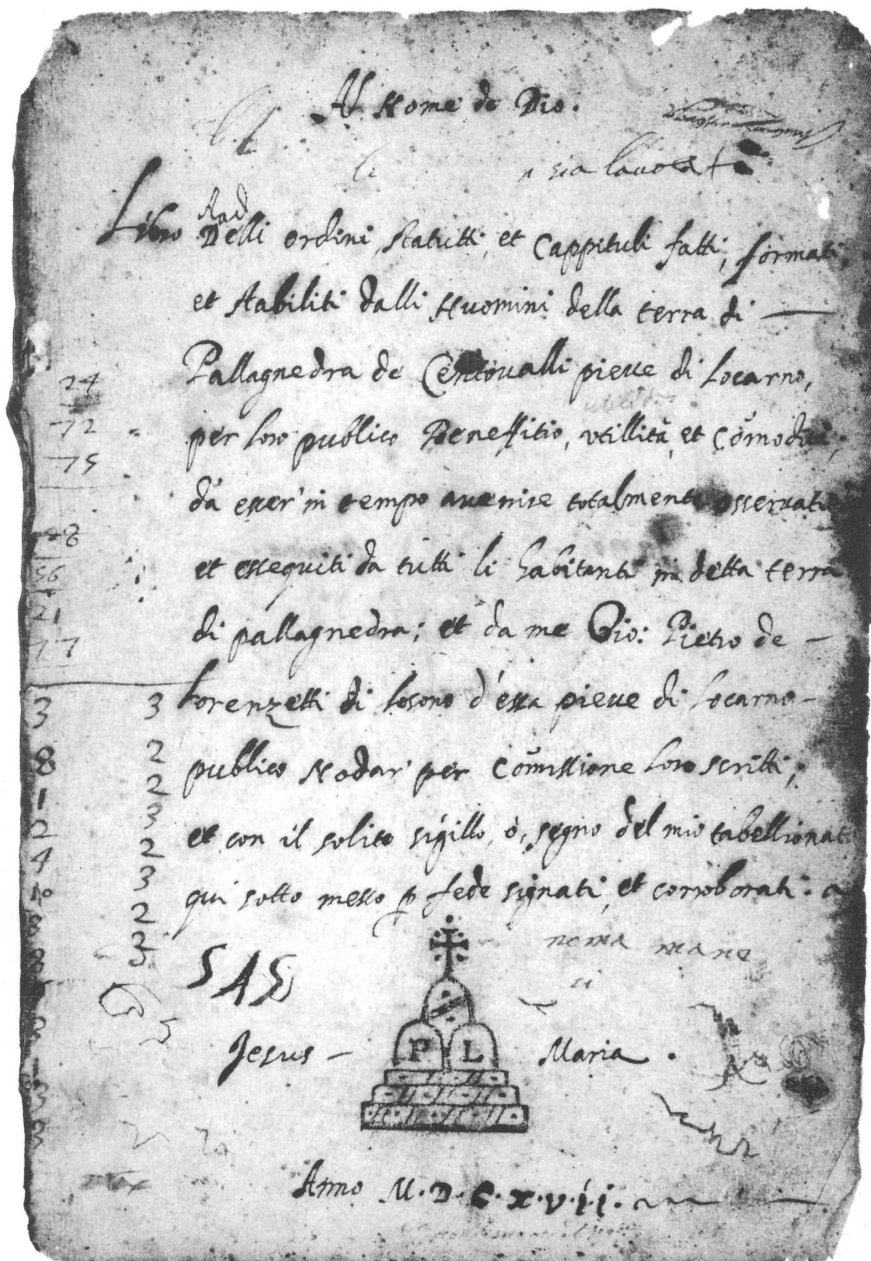 Al Nome de Dio.
sia
Libro Delli ordini, statutti, et Cappituli fatti, formati,
et stabiliti dalli Huomini della terra di —
Pallagnedra de Centovalli pieve di Locarno,
per loro publico Beneffitio, utillità, et Cõmodità,
da esser' in tempo avenire totalmente osservati
et essequiti da tutti li habitanti in detta terra
di pallagnedra; et da me Gio: Pietro de —
Lorenzetti di Losono d'essa pieve di Locarno —
publico Nodar' per Cõmissione loro scritti;
et con il solito sigillo, ò, segno del mio tabellionat
qui sotto messo p fede signati, et corroborati: a
noma mano
SAS
Jesus — P L Maria.
Anno M.D.C.X.V.i.i.
24
72
75
48
56
21
77
3 3
8 2
1 2
2 3
4 2
3
2